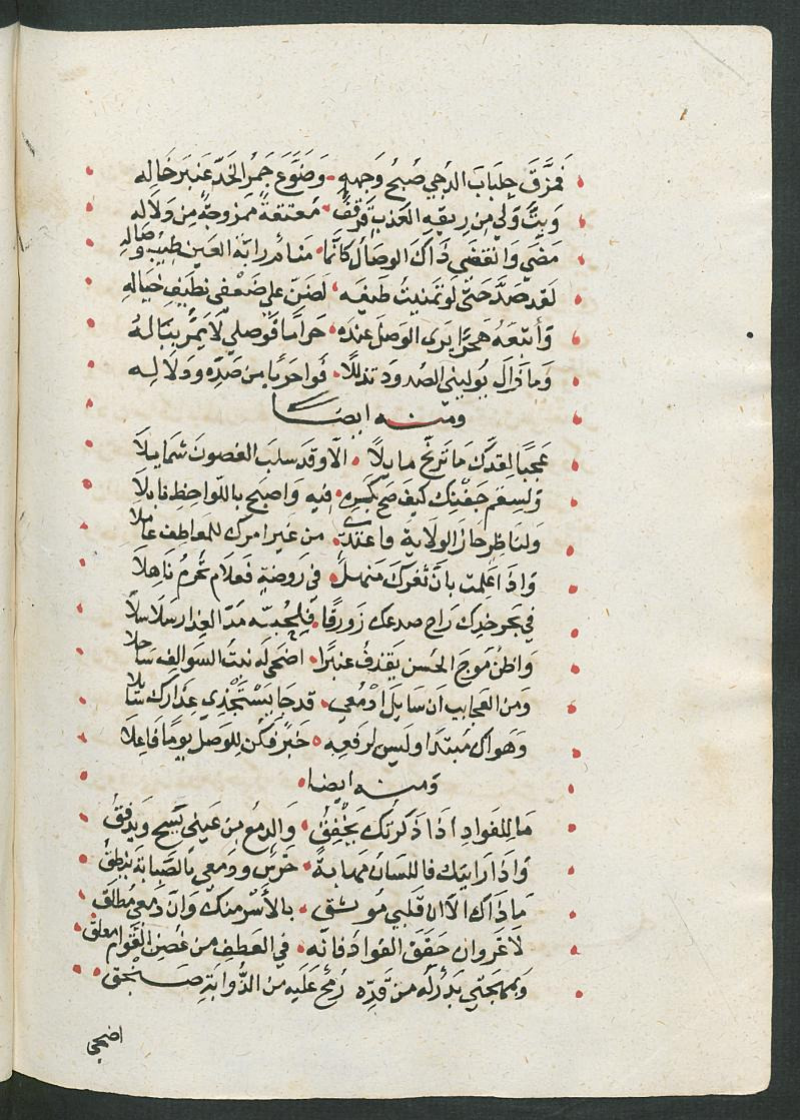 فمزّق جلباب الدجى صبح وجهه وضوّع جمر الخدّ عنبر خاله
وبتّ ولي من ريقه العذب قرقف معتقة ممزوجة من ولاله
مضى وانقضى ذاك الوصال كانما منام رابه العين طيب وصاله
لقد صدّ حتى لو تمنيت طيفه لضنّ على ضعفى بطيف خياله
وأتبعه هجرا يرى الوصل عنده حراما فوصلي لا يمر بباله
وما زال يوليني الصدود تدللا فواحربا من صدّه ودلاله
ومنه ايضا
عجبا لقدّك ما ترنّح مايلا الا وقد سلب الغصون شمايلا
ولسقم جفنك كيف صح بكسره فيه واصبح باللواحظ نابلا
ولناظر حاز الولاية واعتدى من غير امرك للمعاطف عاملا
واذا علمت بان ثغرك منهل في روضة فعلام تحرم ناهلا
في بحر خدك راح صدعك زورقا فلحبّه مدّ العذار سلاسلا
واظن موج الحسن يقذف عنبرا اضحى له نبت السوالف ساحلا
ومن العجايب ان سايل ادمعي قد جا يستجدي عذارك سايلا
وهواك مبتدا وليس لرفعه خبر فكن للوصل يوما فاعلا
ومنه ايضا
ما للفواد اذا ذكرتك يخفق والدمع من عيني يسح ويدفق
واذا رايتك فاللسان مهابة خرس ودمعي بالصبابة ينطق
ما ذاك الا ان قلبي موثق بالأسر منك وان دمعي مطلق
لا غرو ان خفق الفواد فانه في العطف من غصن القوام معلق
وبمهجتي بدر له من قدّه رمح عليه من الذوابة صنجق
اضحى